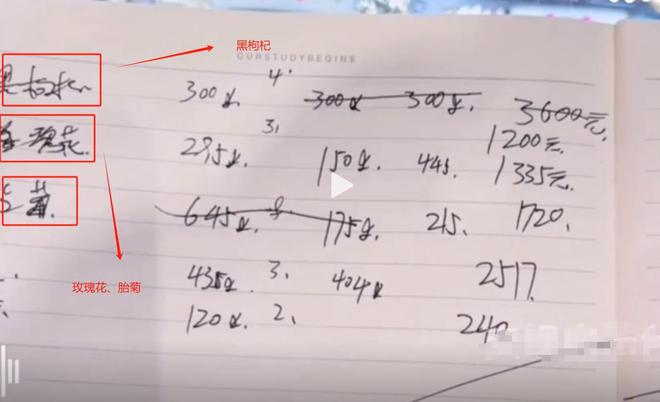 黑枸杞
OURSTUDYBEGINS
黑枸杞 300g 4. 300g 300g. 3600元.
1200元.
玫瑰花. 295g 3. 150g. 445. 1335元.
菊. 645g 8. 175g. 215. 1720.
435g 3. 404g 2517.
玫瑰花、胎菊
120g. 2. 240